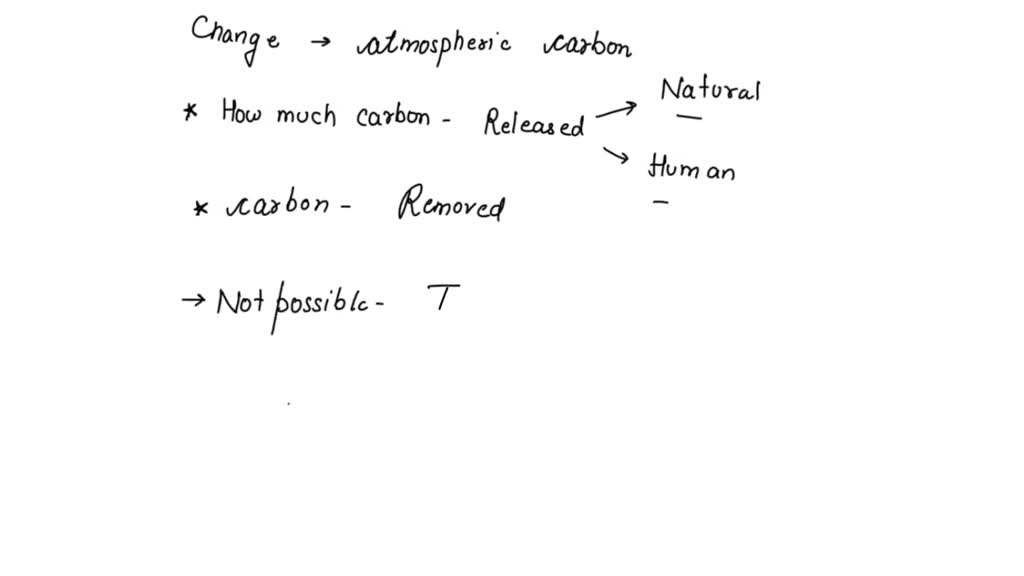 Change → atmospheric carbon
* How much carbon - Released → Natural
→ Human
* carbon - Removed
→ Not possible - T